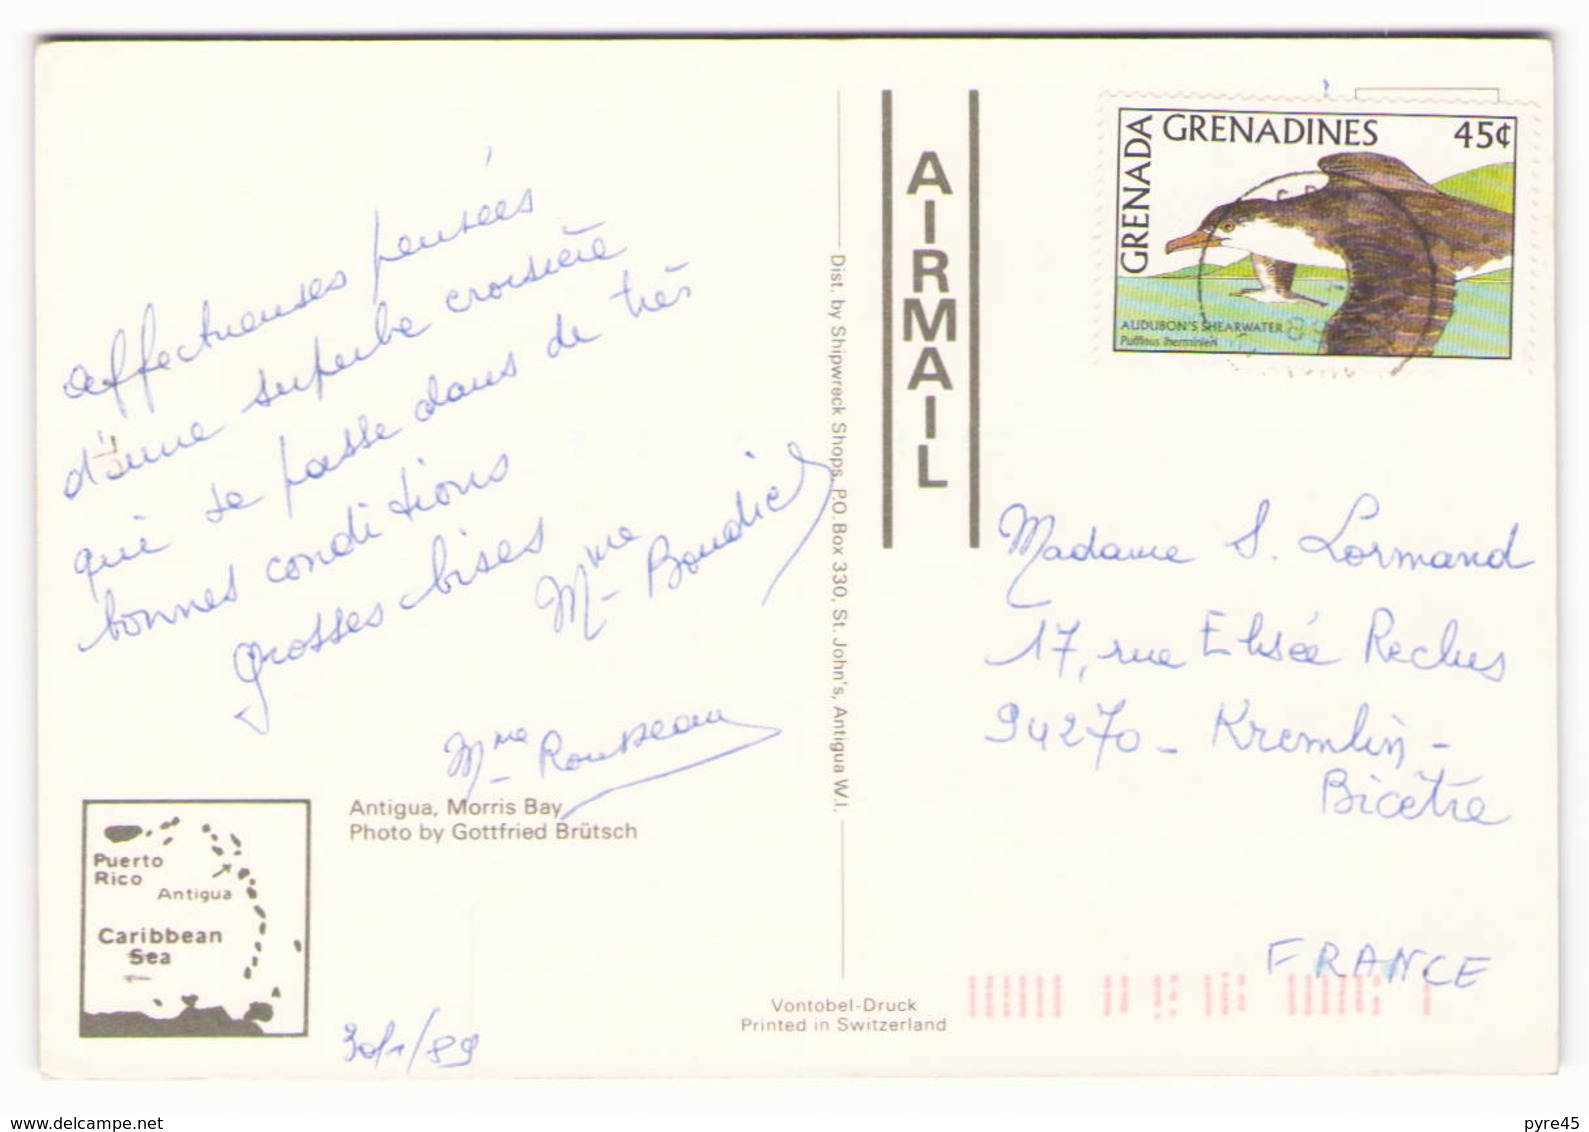 affectueuses pensées
d'une superbe croisière
qui se passe dans de très
bonnes conditions
grosses bises
Mme Boudic
Mme Rousseau
Antigua, Morris Bay
Photo by Gottfried Brütsch
Puerto
Rico
Antigua
Caribbean
Sea
30/1/89
Dist. by Shipwreck Shops, P.O. Box 330, St. John's, Antigua W.I.
Vontobel-Druck
Printed in Switzerland
AIRMAIL
GRENADA
GRENADINES 45¢
AUDUBON'S SHEARWATER
Puffinus lherminieri
Madame S. Lormand
17, rue Elisée Reclus
94270 - Kremlin -
Bicêtre
FRANCE
www.delcampe.net
pyre45